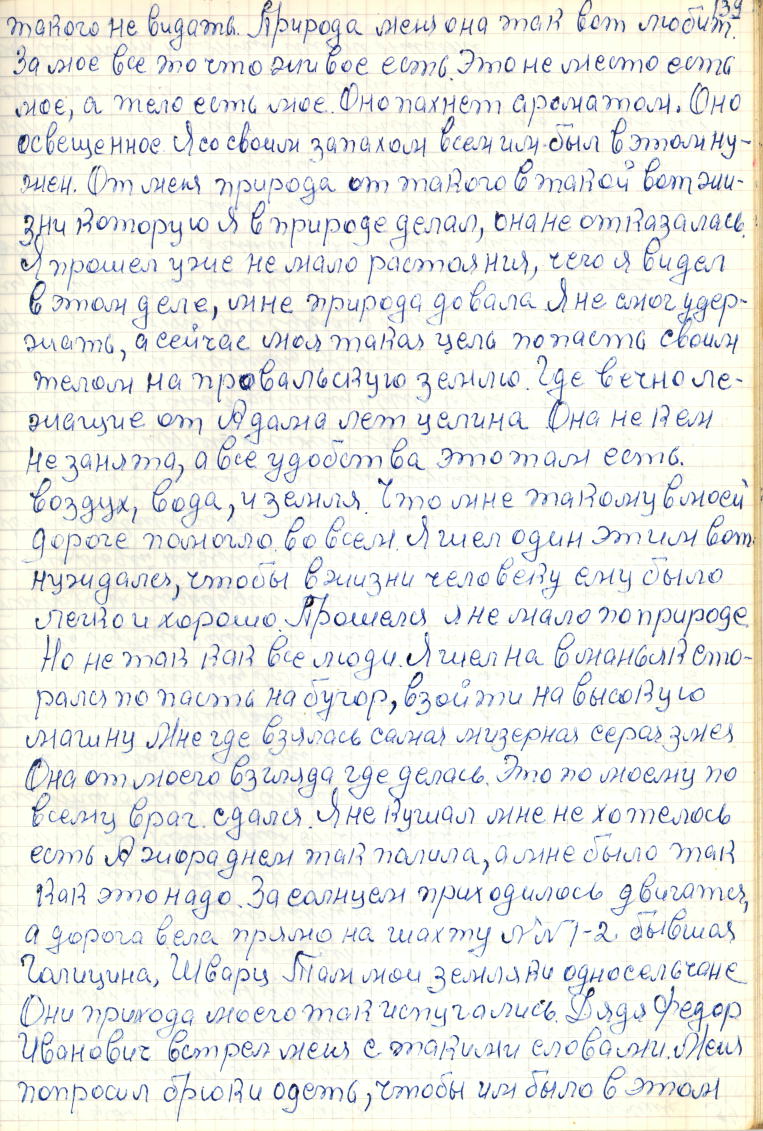 139
такого не видать. Природа меня она так вот любит.
За мое все то что живое есть. Это не место есть
мое, а тело есть мое. Оно пахнет ароматом. Оно
освещенное Я со своим запахом всем им был в этом ну-
жен. От меня природа от такого в такой вот жи-
зни которую я в природе делал, она не отказалась.
Я прошел уже не мало растояния, чего я видел
в этом деле, мне природа довала Я не смог удер-
жать, а сейчас моя такая цель попасть своим
телом на провальскую землю. Где вечно ле-
жащие от Адама лет целина Она не кем
не занята, а все удобства это там есть.
воздух, вода, и земля. Что мне такому в моей
дороге помогло во всем. Я шел один этим вот
нуждался, чтобы в жизни человеку ему было
легко и хорошо. Прошелся я не мало по природе
Но не так как все люди. Я шел на в маньяк сто-
рался попасть на бугор, взойти на высокую
машину Мне где взялась самая мизерная серая змея
Она от моего взгляда где делась. Это по моему по
всему враг сдался. Я не кушал мне не хотелось
есть А жора днем так палила, а мне было так
как это надо. За солнцем приходилось двигатся,
а дорога вела прямо на шахту №№ 1-2 бывшая
Голицина, Шварц Там мои земляки односельчане
Они прихода моего так испугались. Дядя Федор
Иванович встрел меня с такими словами. Меня
попросил брюки одеть, чтобы им было в этом